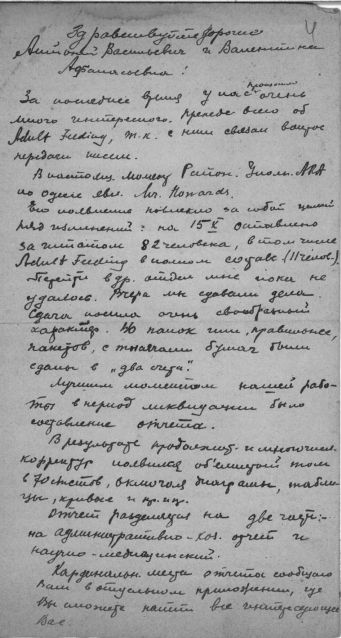 4
Здравствуйте дорогие
Антоний Васильевич и Валентина
Афанасьевна!
За последнее время у нас произошло очень
много интересного. Прежде всего об
Adult Feeding, т.к. с ним связан вопрос
передачи писем.
В настоящ. момент Район. Уполн. АRА
по Одессе явл. Mr. Howards.
Его появление повлекло за собой целый
ряд изменений: на 15 X оставлено
за штатом 82 человека, в том числе
Adult Feeding в полном составе (11 челов.)
Перейти в др. отдел мне пока не
удалось. Вчера мы сдавали дела.
Сдача носила очень своеобразный
характер. 40 папок или, правильнее,
пакетов, с тысячами бумаг были
сданы в „два счета".
Лучшим моментом нашей рабо-
ты в период ликвидации было
составление отчета.
В результате продолжит. и многочисл.
корректур появился об'емистый том
в 70 листов, включая диаграмы, табли-
цы, кривые и пр.
Отчет разделяется на две части:-
на административно-хоз. отчет и
научно-медицинский.
Кардинальн. места отчета сообщаю
Вам в отдельном приложении, где
Вы сможете найти все интересующее
Вас.